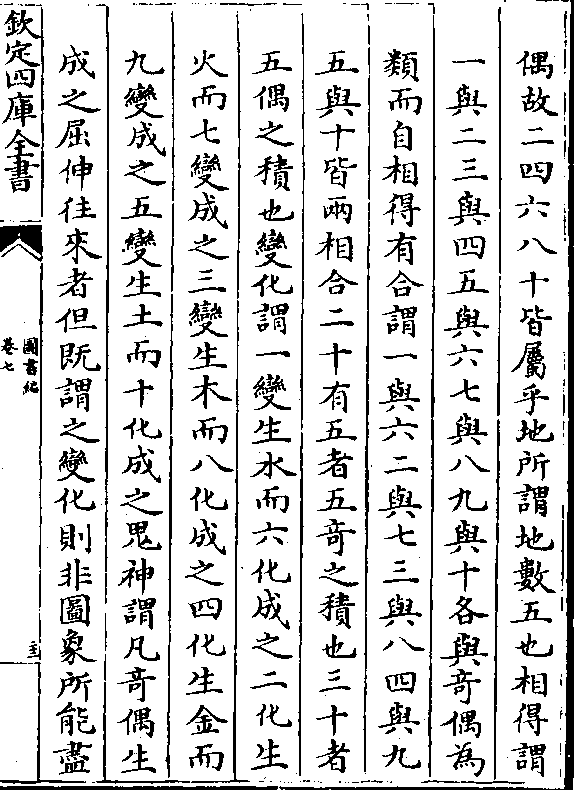 偶故二四六八十皆屬乎地所謂地數五也相得謂
一與二三與四五與六七與八九與十各與奇偶為
類而自相得有合謂一與六二與七三與八四與九
五與十皆兩相合二十有五者五奇之積也三十者
五偶之積也變化謂一變生水而六化成之二化生
火而七變成之三變生木而八化成之四化生金而
九變成之五變生土而十化成之鬼神謂凡奇偶生
成之屈伸往來者但既謂之變化則非圖象所能盡
欽定四庫全書
圖書紀
卷七